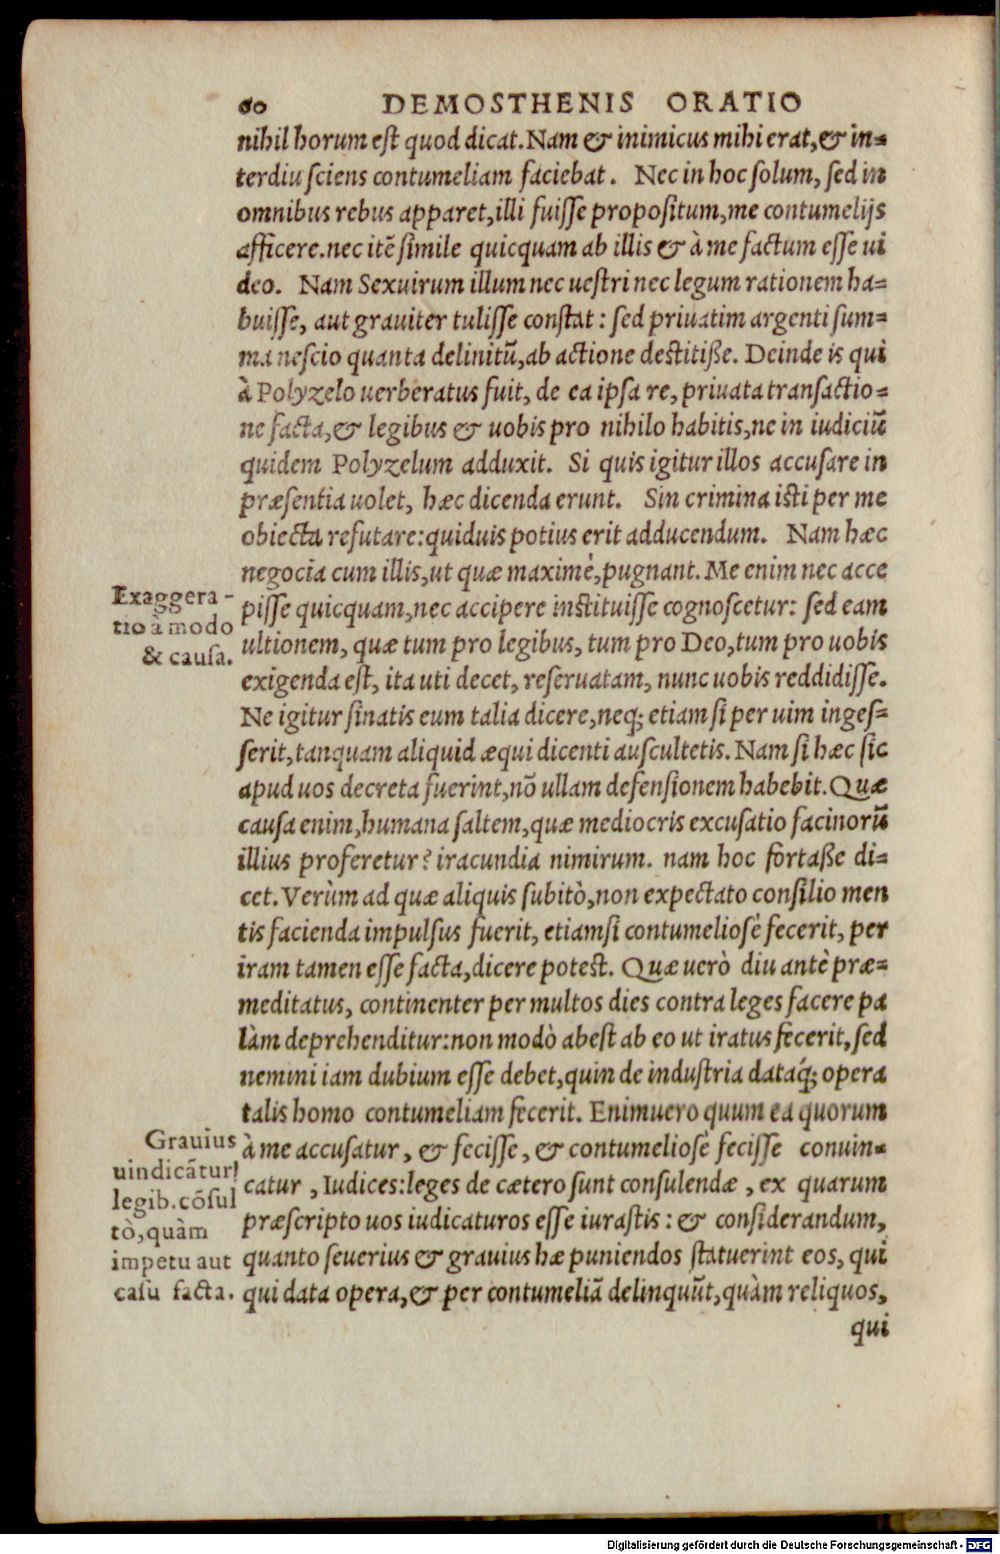 60 DEMOSTHENIS ORATIO
nihil horum est quod dicat. Nam & inimicus mihi erat, & in-
terdiu sciens contumeliam faciebat. Nec in hoc solum, sed in
omnibus rebus apparet, illi fuisse propositum, me contumelijs
afficere. nec itē simile quicquam ab illis & à me factum esse ui
deo. Nam Sexuirum illum nec uestri nec legum rationem ha-
buisse, aut grauiter tulisse constat: sed priuatim argenti sum-
ma nescio quanta delinitũ, ab actione destitiße. Deinde is qui
à Polyzelo uerberatus fuit, de ea ipsa re, priuata transactio-
ne facta, & legibus & uobis pro nihilo habitis, ne in iudiciũ
quidem Polyzelum adduxit. Si quis igitur illos accusare in
præsentia uolet, hæc dicenda erunt. Sin crimina isti per me
obiecta refutare: quiduis potius erit adducendum. Nam hæc
negocia cum illis, ut quæ maximè, pugnant. Me enim nec acce
pisse quicquam, nec accipere instituisse cognoscetur: sed eam
ultionem, quæ tum pro legibus, tum pro Deo, tum pro uobis
exigenda est, ita uti decet, reseruatam, nunc uobis reddidisse.
Ne igitur sinatis eum talia dicere, neq; etiam si per uim inges-
serit, tanquam aliquid æqui dicenti auscultetis. Nam si hæc sic
apud uos decreta fuerint, nō ullam defensionem habebit. Quæ
causa enim, humana saltem, quæ mediocris excusatio facinorũ
illius proferetur? iracundia nimirum. nam hoc fortaße di-
cet. Verùm ad quæ aliquis subitò, non expectato consilio men
tis facienda impulsus fuerit, etiamsi contumeliosè fecerit, per
iram tamen esse facta, dicere potest. Quæ uerò diu antè præ-
meditatus, continenter per multos dies contra leges facere pa
làm deprehenditur: non modò abest ab eo ut iratus fecerit, sed
nemini iam dubium esse debet, quin de industria dataq́; opera
talis homo contumeliam fecerit. Enimuero quum ea quorum
à me accusatur, & fecisse, & contumeliosè fecisse conuin-
catur, Iudices: leges de cætero sunt consulendæ, ex quarum
præscripto uos iudicaturos esse iurastis: & considerandum,
quanto seuerius & grauius hæ puniendos statuerint eos, qui
qui data opera, & per contumeliã delinquũt, quàm reliquos,
qui
Exaggera-
tio à modo
& causa.
Grauius
uindicãtur
legib. cõsul
tò, quàm
impetu aut
casu facta.
Digitalisierung gefördert durch die Deutsche Forschungsgemeinschaft - DFG